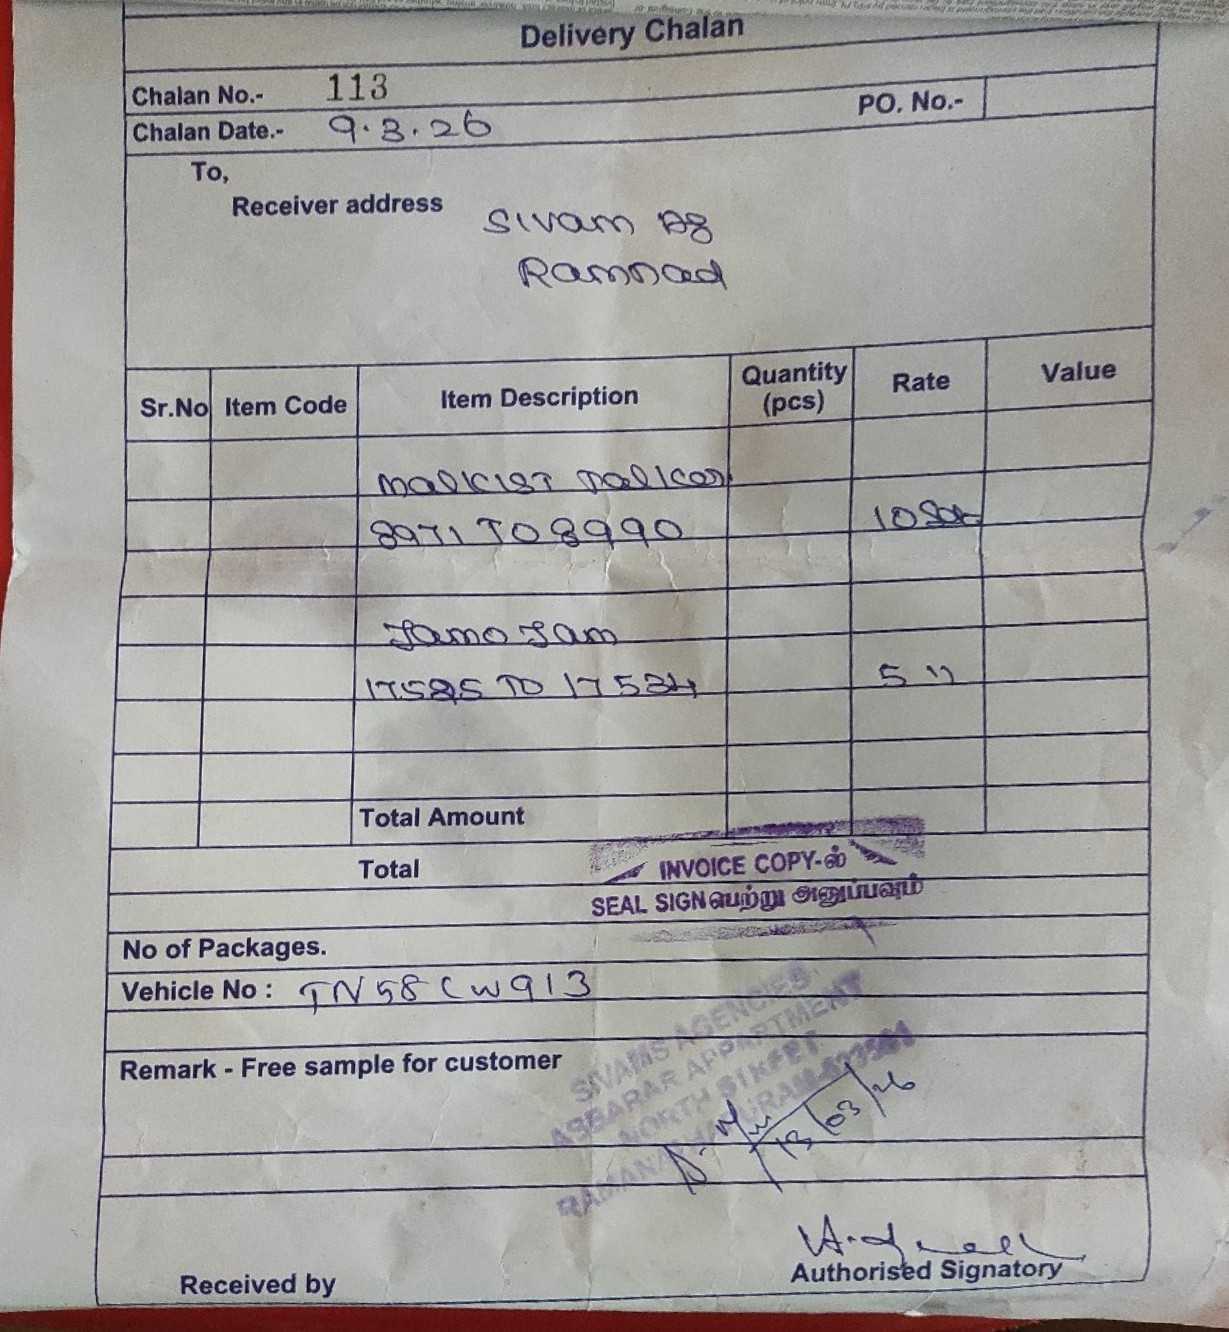 Delivery Chalan
Chalan No.- 113
PO. No.-
Chalan Date.- 9.3.26
To,
Receiver address
Sivam Ag
Ramnad
Sr.No Item Code Item Description Quantity (pcs) Rate Value
Malkist
8971 TO 8990 10
Jamo Jam
17525 TO 17534 5 "
Total Amount
Total
INVOICE COPY-ல்
SEAL SIGN பெற்று அனுப்பவும்
No of Packages.
Vehicle No : TN58CW913
Remark - Free sample for customer
SIVAMS AGENCIES
APPARTMENT
NORTH STREET
13/03/26
Authorised Signatory
Received by